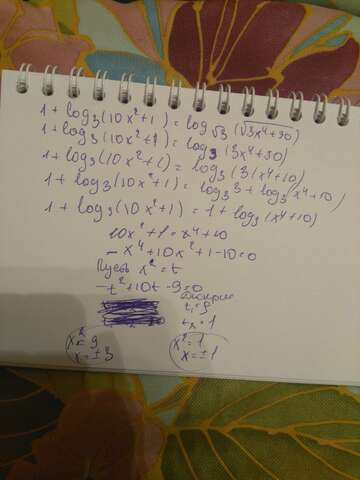 1 + log₃(10x²+1) = log√3 (√3x⁴+30)
1 + log₃(10x²+1) = log₃ (3x⁴+30)
1 + log₃(10x²+1) = log₃ (3(x⁴+10)
1 + log₃(10x²+1) = log₃3 + log₃(x⁴+10)
1 + log₃(10x²+1) = 1 + log₃(x⁴+10)
10x²+1 = x⁴+10
- x⁴+10x²+1-10=0
Пусть x² = t
-t²+10t-9=0
t₁=9
t₂=1
x²=9
x=±3
x²=1
x=±1